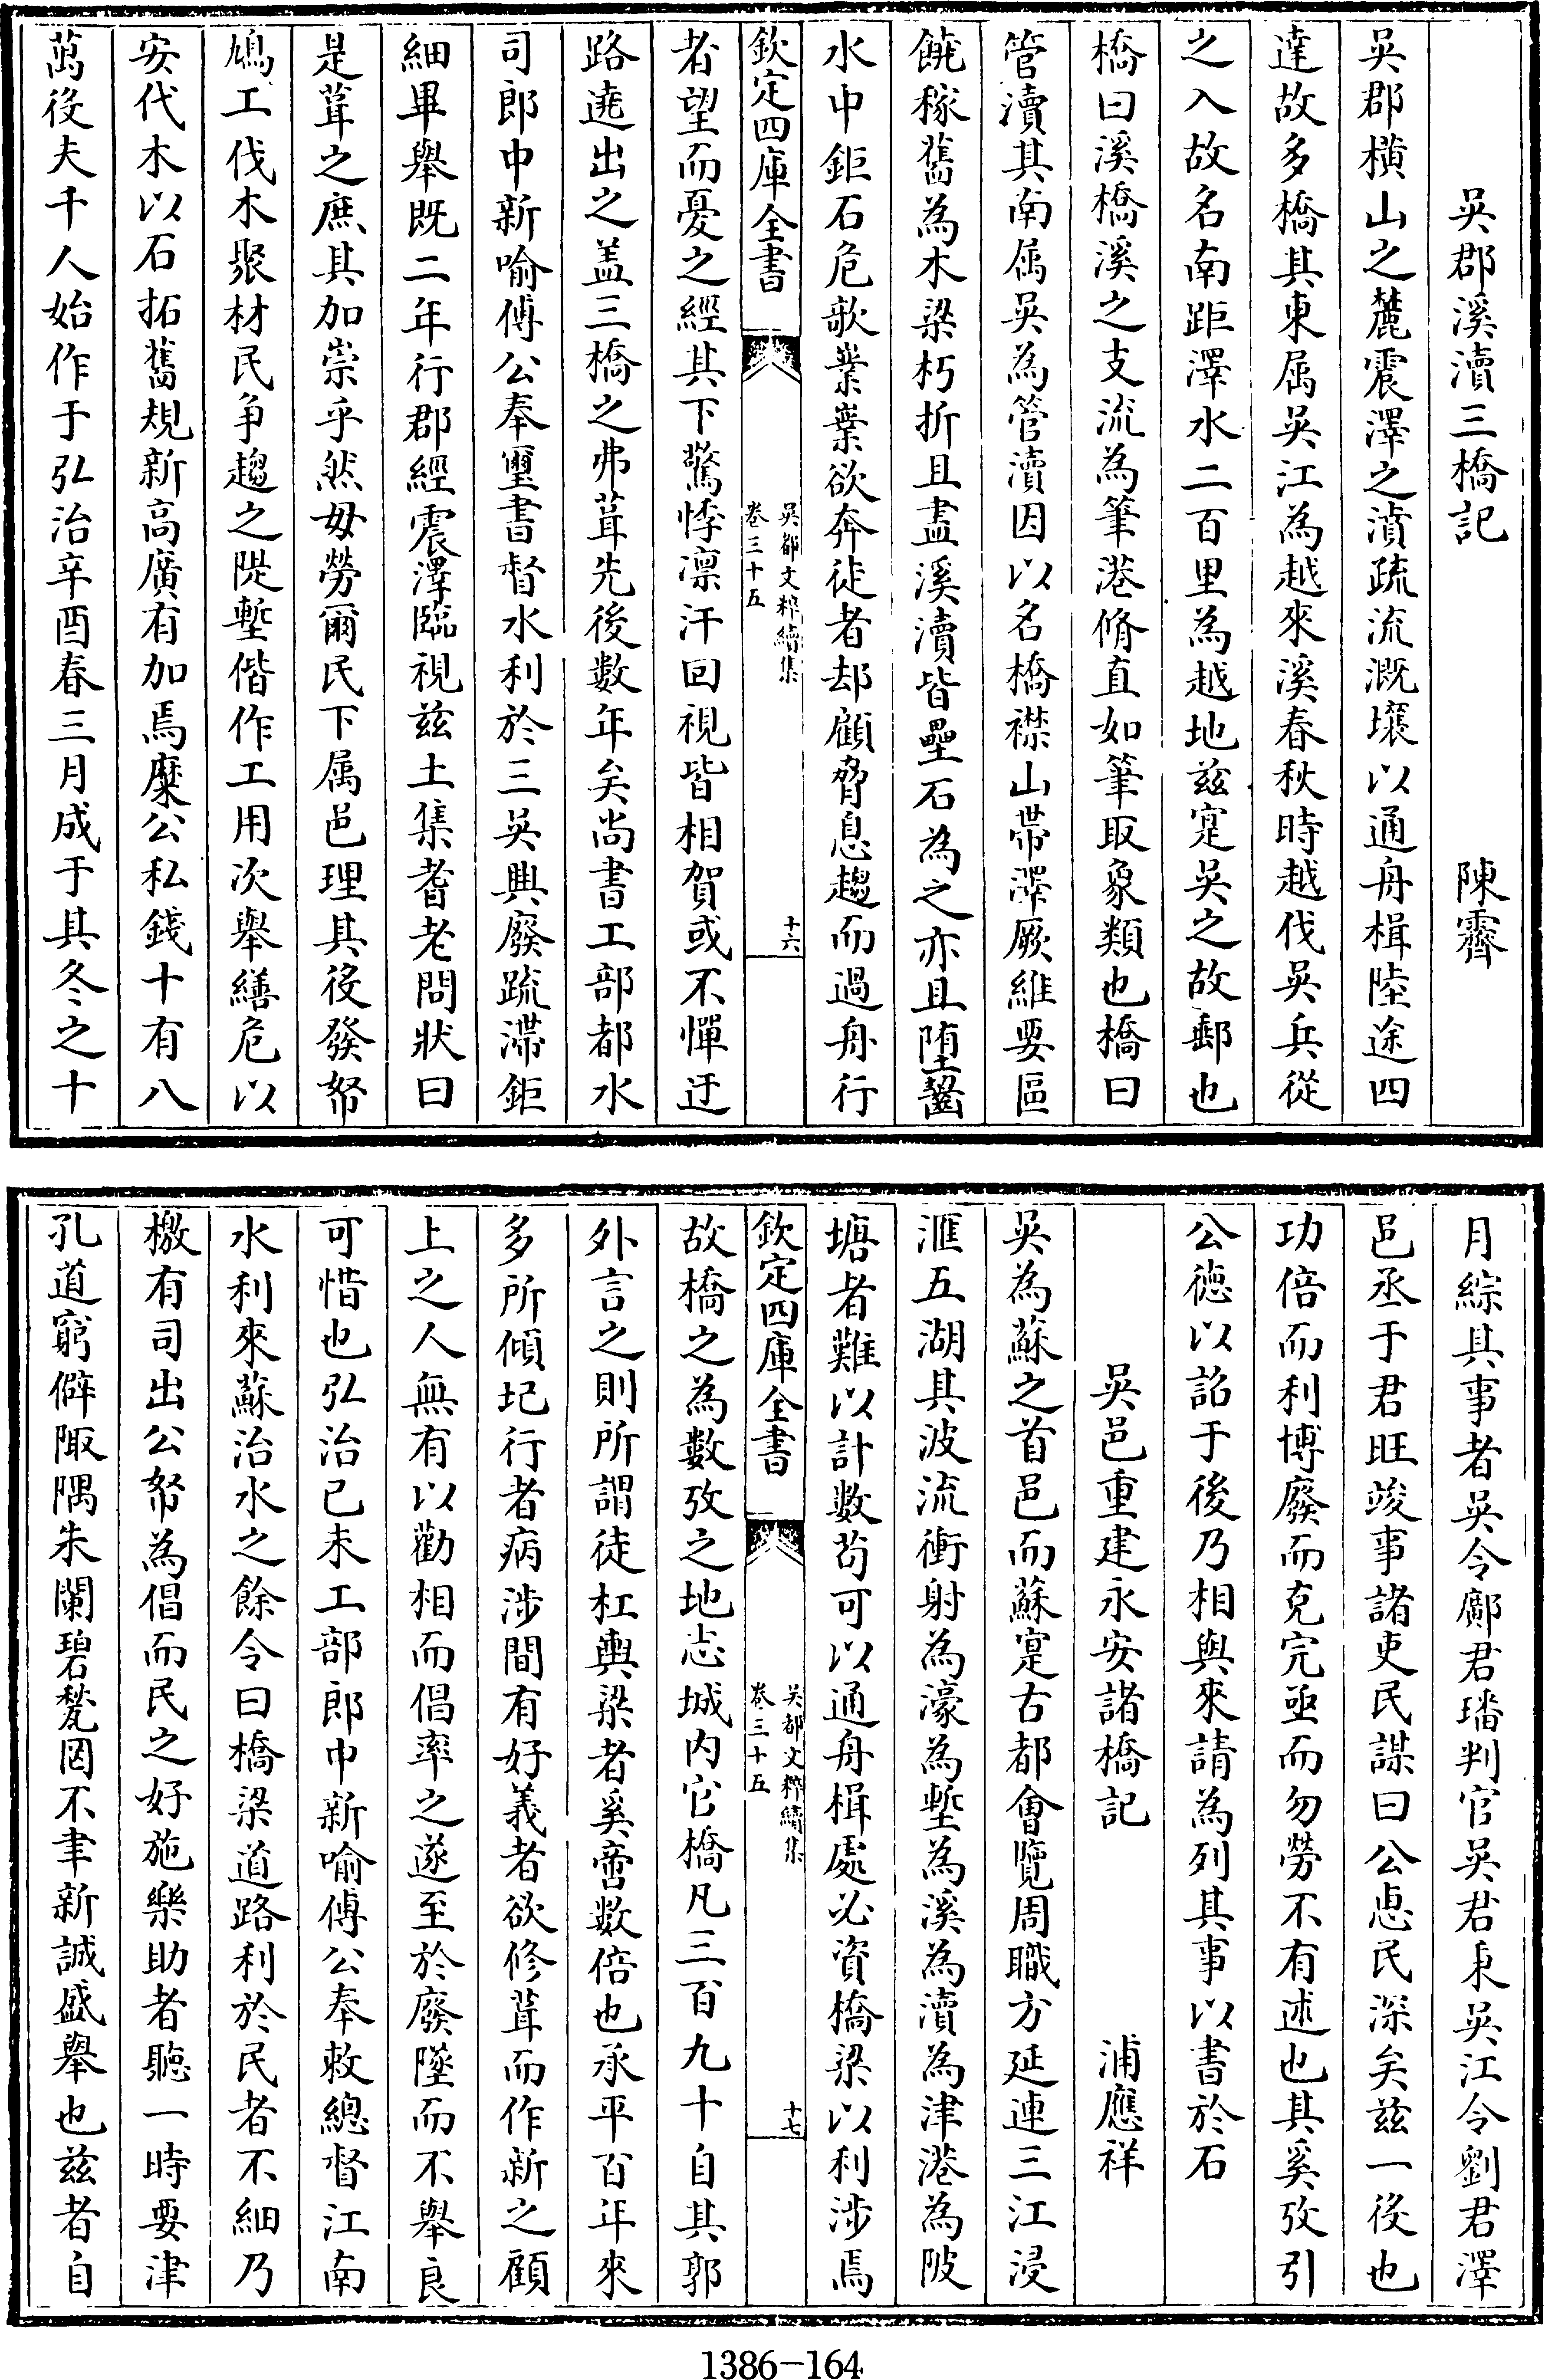 吳郡溪瀆三橋記　陳霽
吳郡橫山之麓震澤之濆疏流溉壤以通舟楫陸途四
達故多橋其東屬吳江為越來溪春秋時越伐吳兵從
之入故名南距澤水二百里為越地兹寔吳之故郵也
橋曰溪橋溪之支流為筆港脩直如筆取象類也橋曰
管瀆其南屬吳為管瀆因以名橋襟山帶澤厥維要區
饒稼舊為木梁朽折且盡溪瀆皆壘石為之亦且墮齾
水中鉅石危欹業業欲奔徒者却顧脅息趨而過舟行
欽定四庫全書
吳都文粹續集
卷三十五
十六
者望而憂之經其下驚悸凛汗回視皆相賀或不憚迂
路遶出之盖三橋之弗葺先後數年矣尚書工部都水
司郎中新喻傅公奉璽書督水利於三吳興廢疏滯鉅
細畢舉既二年行郡經震澤臨視兹土集耆老問狀曰
是葺之庶其加崇乎然毋勞爾民下屬邑理其役發帑
鳩工伐木聚材民争趨之陡塹偕作工用次舉繕危以
安代木以石拓舊規新高廣有加焉糜公私錢十有八
萬役夫千人始作于弘治辛酉春三月成于其冬之十
月綜其事者吳令鄺君璠判官吳君秉吳江令劉君澤
邑丞于君旺竣事諸吏民謀曰公惠民深矣兹一役也
功倍而利博廢而克完亟而勿勞不有述也其奚攷引
公徳以詔于後乃相與來請為列其事以書於石
吳邑重建永安諸橋記　浦應祥
吳為蘇之首邑而蘇寔古都會覽周職方延連三江浸
滙五湖其波流衝射為濠為塹為溪為瀆為津港為陂
塘者難以計數苟可以通舟楫處必資橋梁以利涉焉
欽定四庫全書
吳都文粹續集
卷三十五
十七
故橋之為數攷之地志城内它橋凡三百九十自其郭
外言之則所謂徒杠輿梁者奚啻數倍也承平百年來
多所傾圮行者病涉間有好義者欲修葺而作新之顧
上之人無有以勸相而倡率之遂至於廢墜而不舉良
可惜也弘治已未工部郎中新喻傅公奉敕總督江南
水利來蘇治水之餘令曰橋梁道路利於民者不細乃
檄有司出公帑為倡而民之好施樂助者聽一時要津
孔道窮僻陬隅朱闌碧甃罔不聿新誠盛舉也兹者自
1386-164